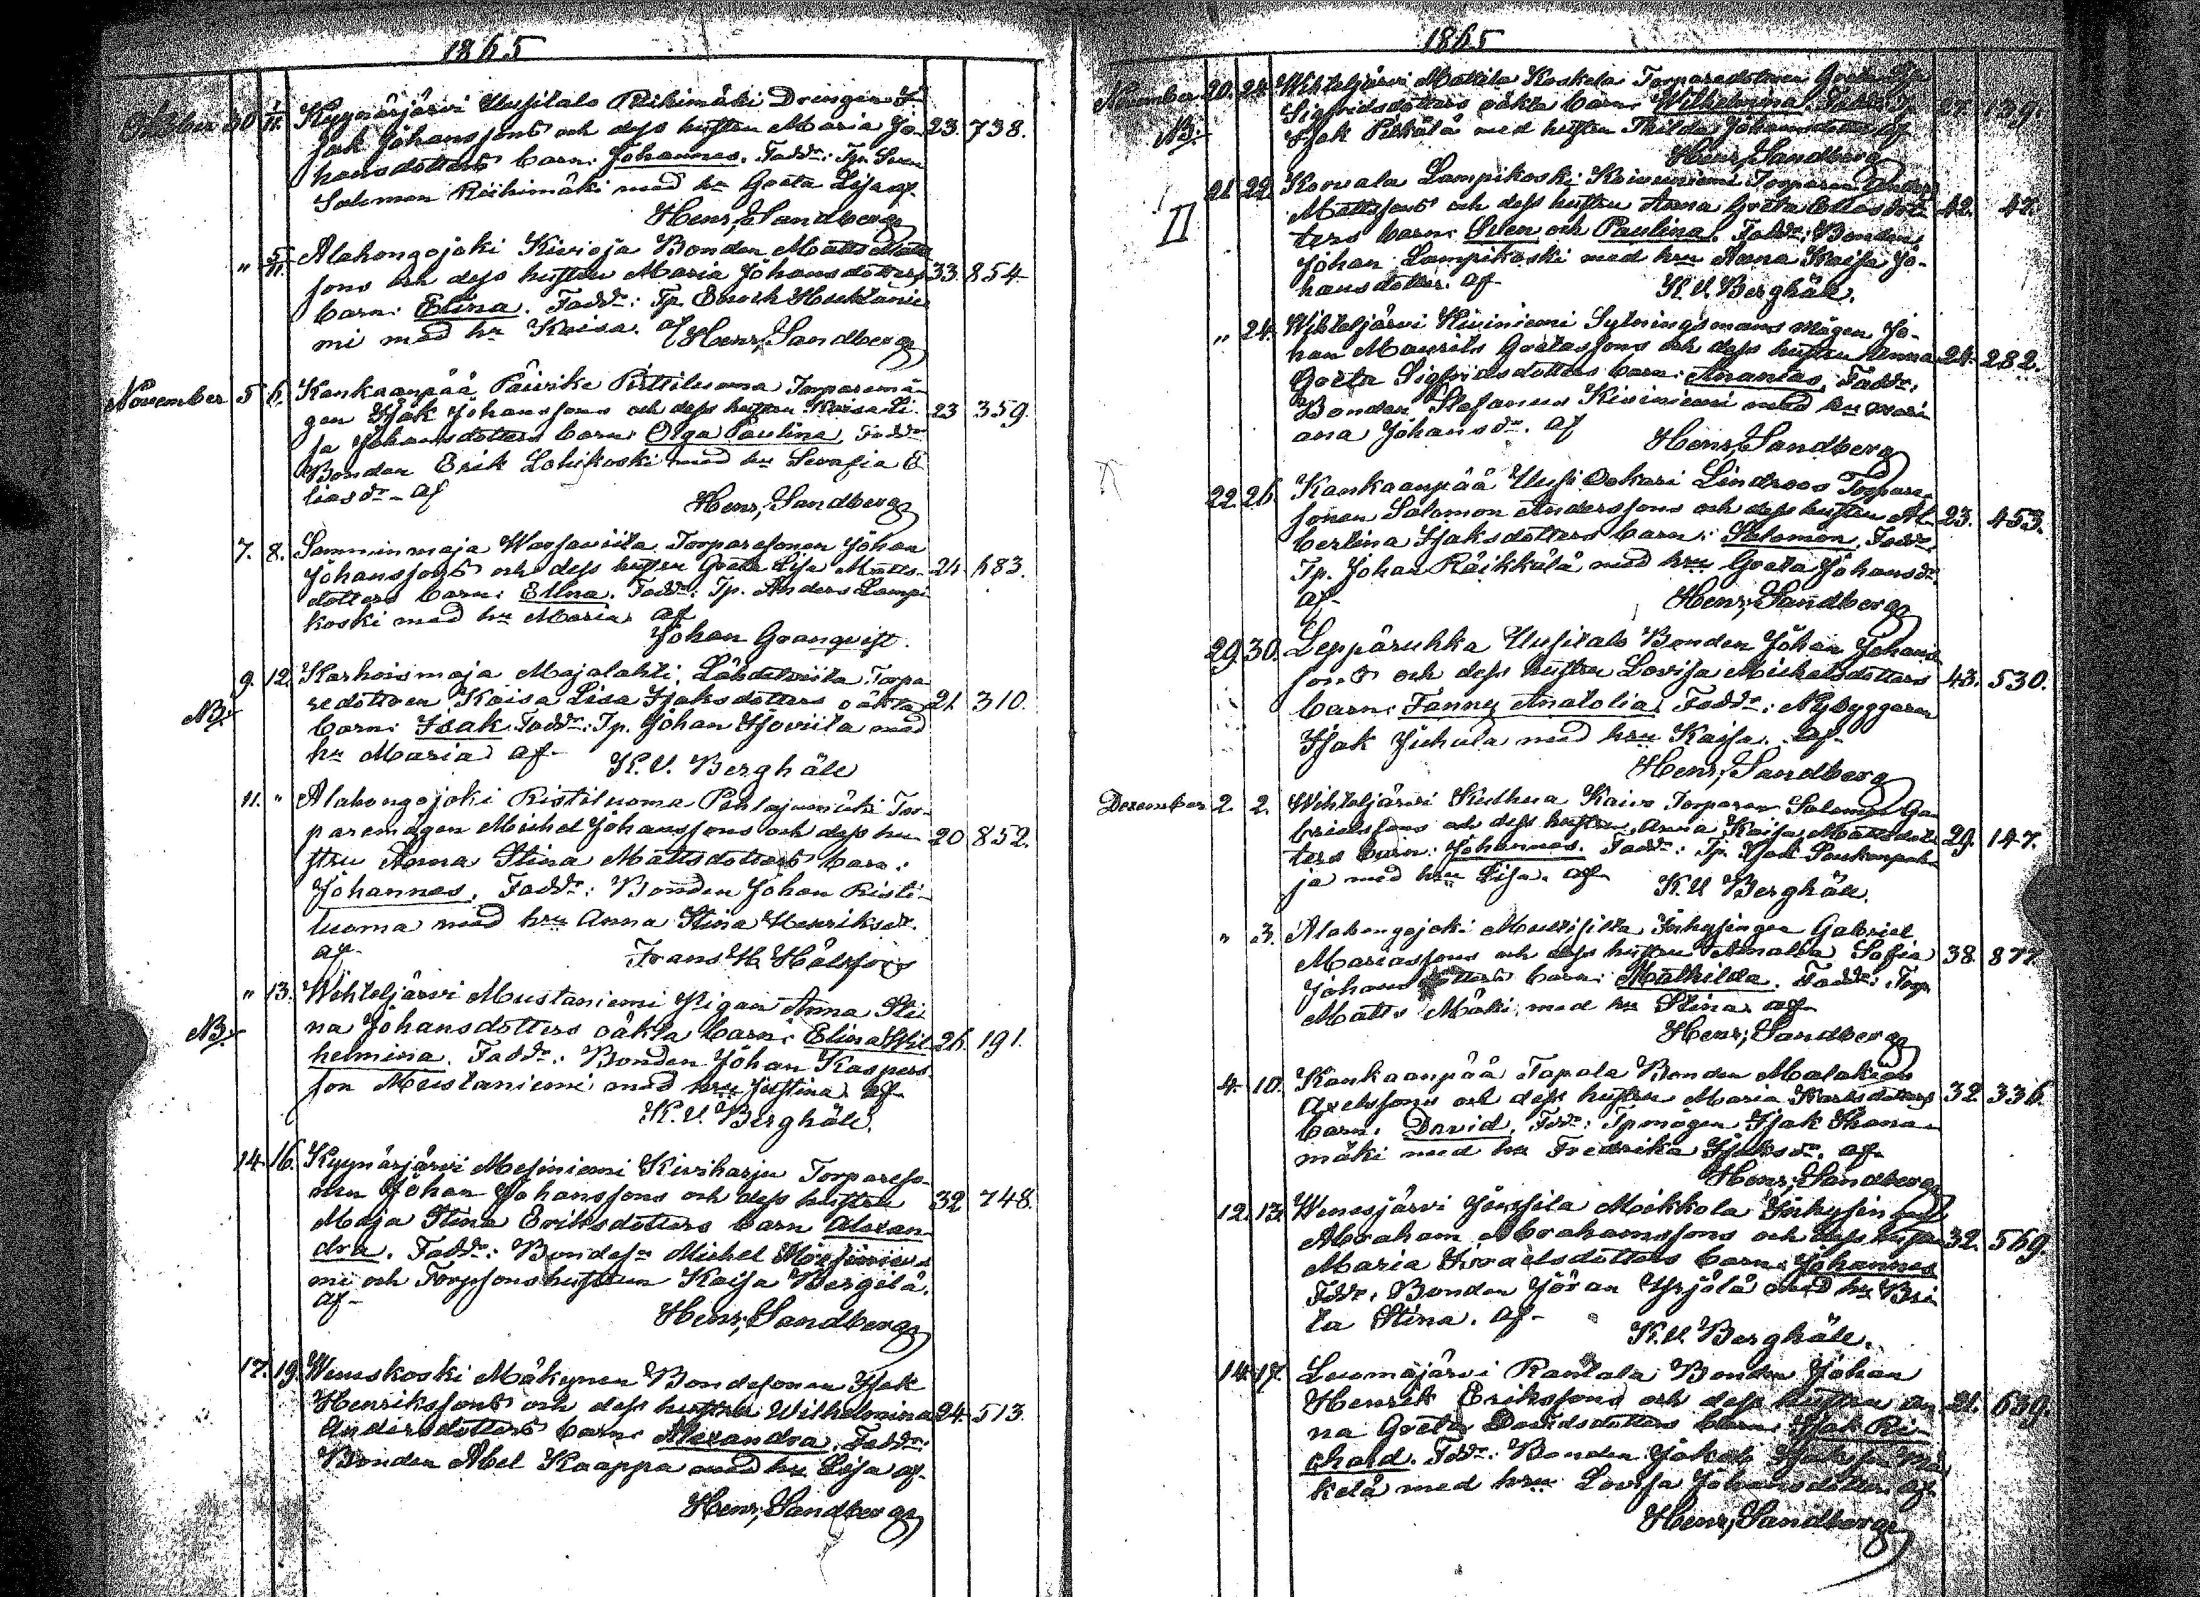 1865
October 30 1/11. Kyynärjärvi Uusitalo Riihimäki Drengen I-
sak Johanssons och dess hustru Maria Jo- 23. 738.
hansdotters barn: Johannes. Fadd:r: Tp. Sven
Salomon Riihimäki med h:u Greta Lisa af-
Henr. Sandberg
" 5/11. Alahongojoki Kivioja Bonden Matts Matts
sons och dess hustru Maria Johansdotters 33. 854
barn: Elina. Fadd:r: Tp. Enoch Huhtanie
mi med h:u Kaisa. af Henr. Sandberg
November 5 6. Kankaanpää Päivike Pirttiluoma Torparemå-
gen Isak Johanssons och dess hustru Kaisa Li- 23 359.
sa Johansdotters barn: Olga Paulina, Fadd:r
Bonden Erik Lohikoski med h:u Serafia E
liasd:r - af Henr. Sandberg
7. 8. Samminmaja Torparesonen Johan
Johanssons och dess hustru Greta Lisa Matts- 24 683.
dotters barn: Elina. Fadd:r: Tp. Anders Lampi
koski med h:u Maria. af
Johan Granqvist.
9. 12. Karhoismaja Majalahti, Torpa
redottren Kaisa Lisa Isaksdotters oäkta 21 310.
NB. barn: Isak. Fadd:r: Tp. Johan med
h:u Maria af- K.V. Berghäll
11. " Alahongojoki Ristiluoma Tor-
paremågen Michel Johanssons och dess hu- 20 852.
stru Anna Stina Mattsdotters barn:
Johannes, Fadd:r: Bonden Johan Risti-
luoma med h:ru Anna Stina Henriksd:r.
af- Frans H.
" 13. Wihteljärvi Mustaniemi Pigan Anna Sti
na Johansdotters oäkta barn: Elina Wil- 26. 191.
NB. helmina. Fadd:r: Bonden Johan Kaspers-
son Mustaniemi med h:ru Justina. af-
K.V. Berghäll.
14. 16. Kyynärjärvi Mesiniemi Kiviharju Torpareso-
nen Johan Johanssons och dess hustru 32 748.
Maja Stina Eriksdotters barn Alexan-
dra. Fadd:r: Bondes:n Michel
mi och Torpsonshustrun Kaisa
af-
Henr. Sandberg
17. 19. Weneskoski Mäkynen Bondesonen Isak
Henrikssons och dess hustru Wilhelmina 24. 513.
Andersdotters barn: Alexandra, Fadd:r:
Bonden Abel Kaappa med h:u Lisa af-
Henr. Sandberg
1865
November 20. 22. Wihteljärvi Mattila Koskela Torparedottren Greta Lisa
Sigfridsdotters oäkta barn: Wilhelmina. Fadd:r: Tp. 27. 139.
NB. Isak med hustru Thilda Johansdotter af
Henr. Sandberg
21. 22. Korvala Lampikoski Koivuniemi Torparen Anders
II Mattssons och dess hustru Anna Greta 42. 47.
ters barn: Sven och Paulina. Fadd:r: Bonden
Johan Lampikoski med h:ru Anna Kaisa Jo-
hansdotter. af- K.V. Berghäll.
" 24. Wihteljärvi Kiviniemi Sytningsmans mågen Jo-
han Maurits Gretassons och dess hustru Anna 24. 282.
Greta Sigfridsdotters barn: Ananias, Fadd:r:
Bonden Stefanus Kiviniemi med h:u Mari
ana Johansd:r. af
Henr. Sandberg
22. 26. Kankaanpää Uusi Ookari Lindroos Torpare-
sonen Salomon Anderssons och dess hustru Al- 23. 453.
bertina Isaksdotters barn: Salomon, Fadd:r
Tp. Johan Räikkälä med h:ru Greta Johansd:r.
af-
Henr. Sandberg
29. 30. Leppäruhka Uusitalo Bonden Johan Johans
sons och dess hustru Lovisa Michelsdotters 43. 530.
barn: Fanny Anatolia. Fadd:r: Nybyggaren
Isak Juhula med h:ru Kaisa. af-
Henr. Sandberg
December 2. 2. Wihteljärvi Kiilhua Kaivo Torparen Salomon Ga-
brielssons och dess hustru Anna Kaisa Mattsdot- 29. 147.
ters barn: Johannes. Fadd:r: Tp. Isak
ja med h:ru Lisa. af- K.V. Berghäll.
" 3. Alahongojoki Inhysingen Gabriel
Mariassons och dess hustru Amalia Sofia 38. 877.
Johansdotters barn: Mathilda. Fadd:r: Torp.
Matts Mäki med h:u Stina. af-
Henr. Sandberg
4. 10. Kankaanpää Tapala Bonden Malakias
Axelssons och dess hustru Maria 32. 336.
barn: David, Fdd:r: Tpmågen Isak
mäki med h:u Fredrika Isaksd:r. af-
Henr. Sandberg
12. 13. Wenesjärvi Jussila Mikkola Inhysing
Abraham Abrahamssons och dess hustru 32. 569.
Maria Israelsdotters barn: Johannes
Fdd:r, Bonden Jöran Yrjölä med h:u Bri
ta Stina. af-
K.V. Berghäll.
14. 17. Luomajärvi Rantala Bonden Johan
Henrik Erikssons och dess hustru An 21. 639.
na Greta Davidsdotters barn: Isak Ri-
chard. Fdd:r: Bonden Jakob
kelä med h:ru Lovisa Johansdotter. af-
Henr. Sandberg